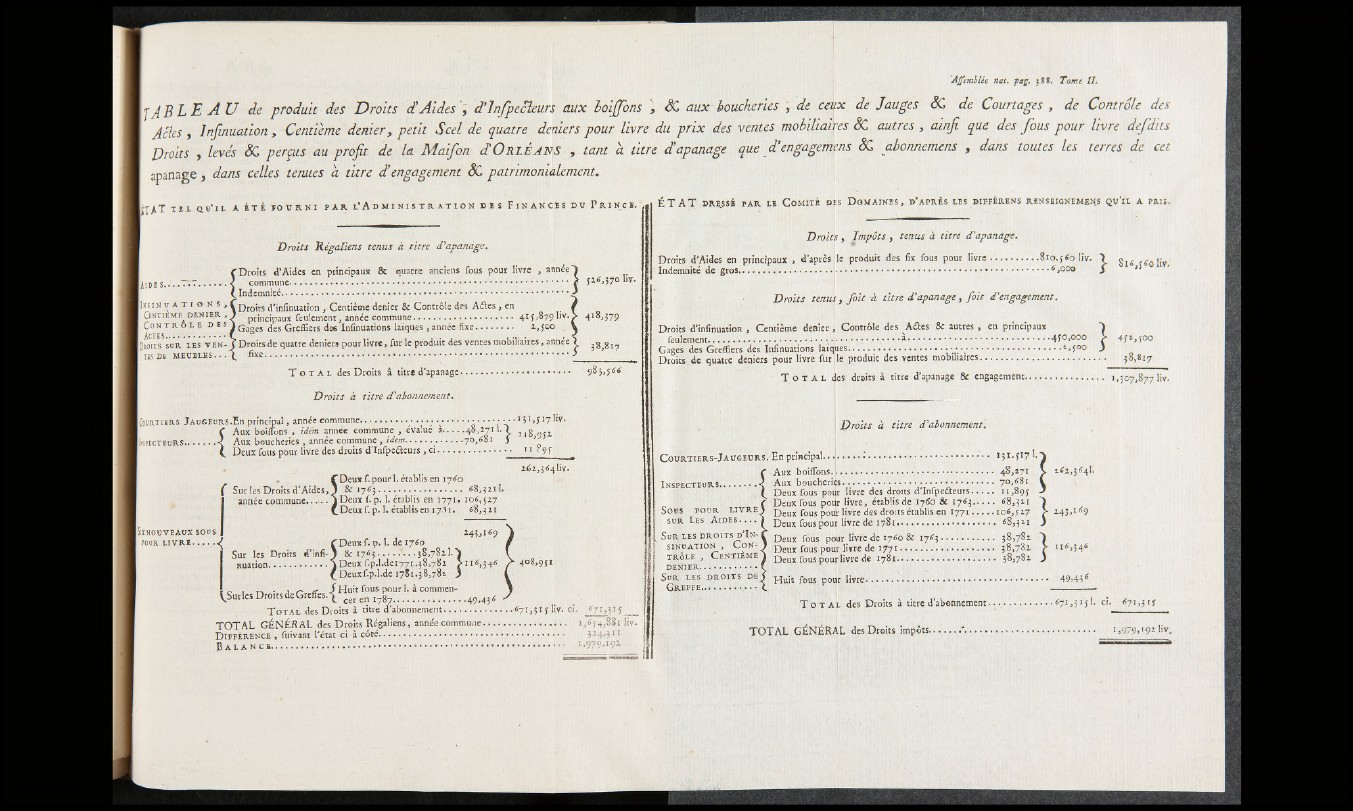 Assemblée nat. pag. 388. Tome II.
TABLEAU de produit des Droits d'Aides, d'Inspecteurs aux boissons, & aux boucheries, de ceux de Jauges & de Courtages, de Contrôle des
Actes, Insinuation, Centième denier, petit Scel de quatre deniers pour livre du prix des ventes mobiliaires & autres, ainsi que des sous pour livre desdits
Droits, levés & perçus au profit de la Maison d'ORLÉANS, tant à titre d'apanage que d'engagemens & abonnemens, dans toutes les terres de cet
apanage, dans celles tenues à titre d'engagement & patrimonialement.
ÉTAT TEL QU'IL A ÉTÉ FOURNI PAR L'ADMINISTRATION DES FINANCES DU PRINCE.
Droits Régaliens tenus à titre d'apanage.
AIDES....... Droits d'Aides en principaux & quatre anciens sous pour livre, année
commune.......
Indemnité....... 526,370 liv.
INSINUATIONS, CENTIÈME DENIER, CONTRÔLE DES ACTES....... Droits d'insinuation, Centième denier & Contrôle des Actes, en
principaux seulement, année commune....... 415,879 liv.
Gages des Greffiers des Insinuations laiques, année fixe....... 2,500 418,379
DROITS SUR LES VENTES DE MEUBLES... Droits de quatre deniers pour livre, sur le produit des ventes mobiliaires, année
fixe....... 38,817
TOTAL des Droits à titre d'apanage....... 983,566
Droits à titre d'abonnement.
COURTIERS JAUGEURS. En principal, année commune....... 131,517 liv.
INSPECTEURS....... Aux boissons, idem année commune, évalué à.....48,271 l.
Aux boucheries, année commune, idem.......70,681 118,952
Deux sous pour livre des droits d'Inspecteurs, ci....... 11 895
262,364 liv.
Sur les Droits d'Aides, année commune...... Deux s. pour l. établis en 1760
& 1763....... 68,321 l.
Deux s. p. l. établis en 1771. 106,527
Deux s. p. l. établis en 1781. 68,321
243,169
SIX NOUVEAUX SOUS POUR LIVRE......
Sur les Droits d'insinuation....... Deux s. p. l. de 1760
& 1763.......38,782 l.
Deux s.p.l. de 1771.38,782 116,346
Deux s.p.l. de 1781.38,782
408,951
Sur les Droits de Greffes. Huit sous pour l. à commencer
en 1787.......49,436
TOTAL des Droits à titre d'abonnement.......671,315 liv. ci. 671,315
TOTAL GÉNÉRAL des Droits Régaliens, année commune....... 1,654,881 liv.
DIFFÉRENCE, suivant l'état ci à côté....... 324,311
BALANCE....... 1,979,192
ÉTAT DRESSÉ PAR LE COMITÉ DES DOMAINES, D'APRÈS LES DIFFÉRENS RENSEIGNEMENS QU'IL A PRIS.
Droits, Impôts, tenus à titre d'apanage.
Droits d'Aides en principaux, d'après le produit des six sous pour livre.......810,560 liv.
Indemnité de gros.......6,000 816,560 liv.
Droits tenus, soit à titre d'apanage, soit d'engagement.
Droits d'insinuation, Centième denier, Contrôle des Actes & autres, en principaux
seulement.......à.......450,000
Gages des Greffiers des Insinuations laiques.......2,500 452,500
Droits de quatre deniers pour livre sur le produit des ventes mobiliaires....... 38,817
TOTAL des droits à titre d'apanage & engagement....... 1,307,877 liv.
Droits à titre d'abonnement.
COURTIERS-JAUGEURS. En principal....... 131,517 l.
INSPECTEURS....... Aux boissons....... 48,271
Aux boucheries....... 70,681
Deux sous pour livre des droits d'Inspecteurs..... 11,895 262,364 l.
SOUS POUR LIVRE SUR LES AIDES.... Deux sous pour livre, établis de 1760 & 1763..... 68,321
Deux sous pour livre des droits établis en 1771.....106,527
Deux sous pour livre de 1781....... 68,321 243,169
SUR LES DROITS D'INSINUATION, CONTRÔLE, CENTIÈME DENIER....... Deux sous pour livre de 1760 & 1763....... 38,782
Deux sous pour livre de 1771....... 38,782
Deux sous pour livre de 1781....... 38,782 116,346
SUR LES DROITS DE GREFFE....... Huit sous pour livre....... 49,436
TOTAL des Droits à titre d'abonnement.......671,315 l. ci. 671,315
TOTAL GÉNÉRAL des Droits impôts....... 1,979,192 liv.